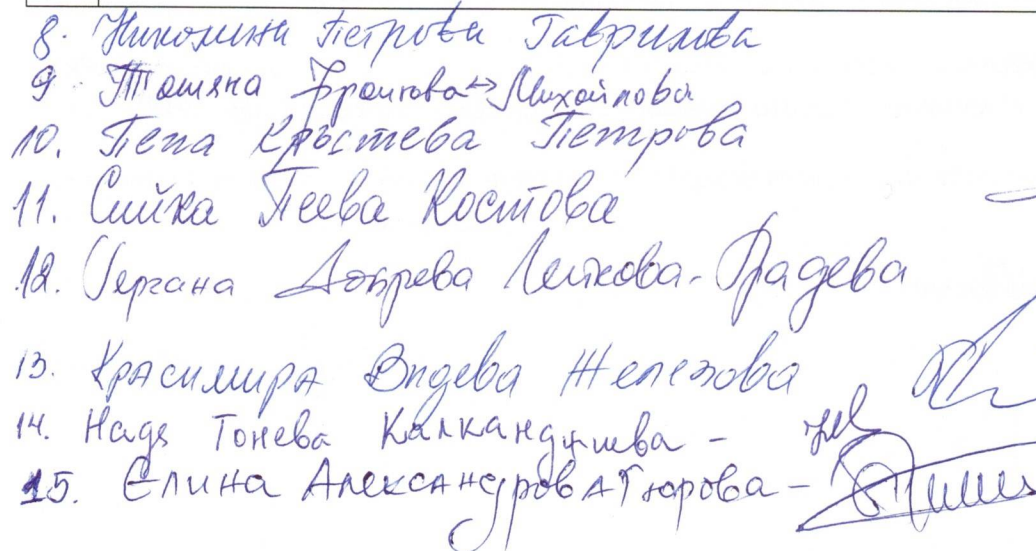 8. Николина Петрова Гаврилова
9. Татяна Михайлова
10. Пепа Кръстева Петрова
11. Сийка Пеева Костова
12. Гергана Добрева Лейкова-Градева
13. Красимира Видева Железова
14. Надя Тонева Калканджиева -
15. Елина Александрова Тюрова -